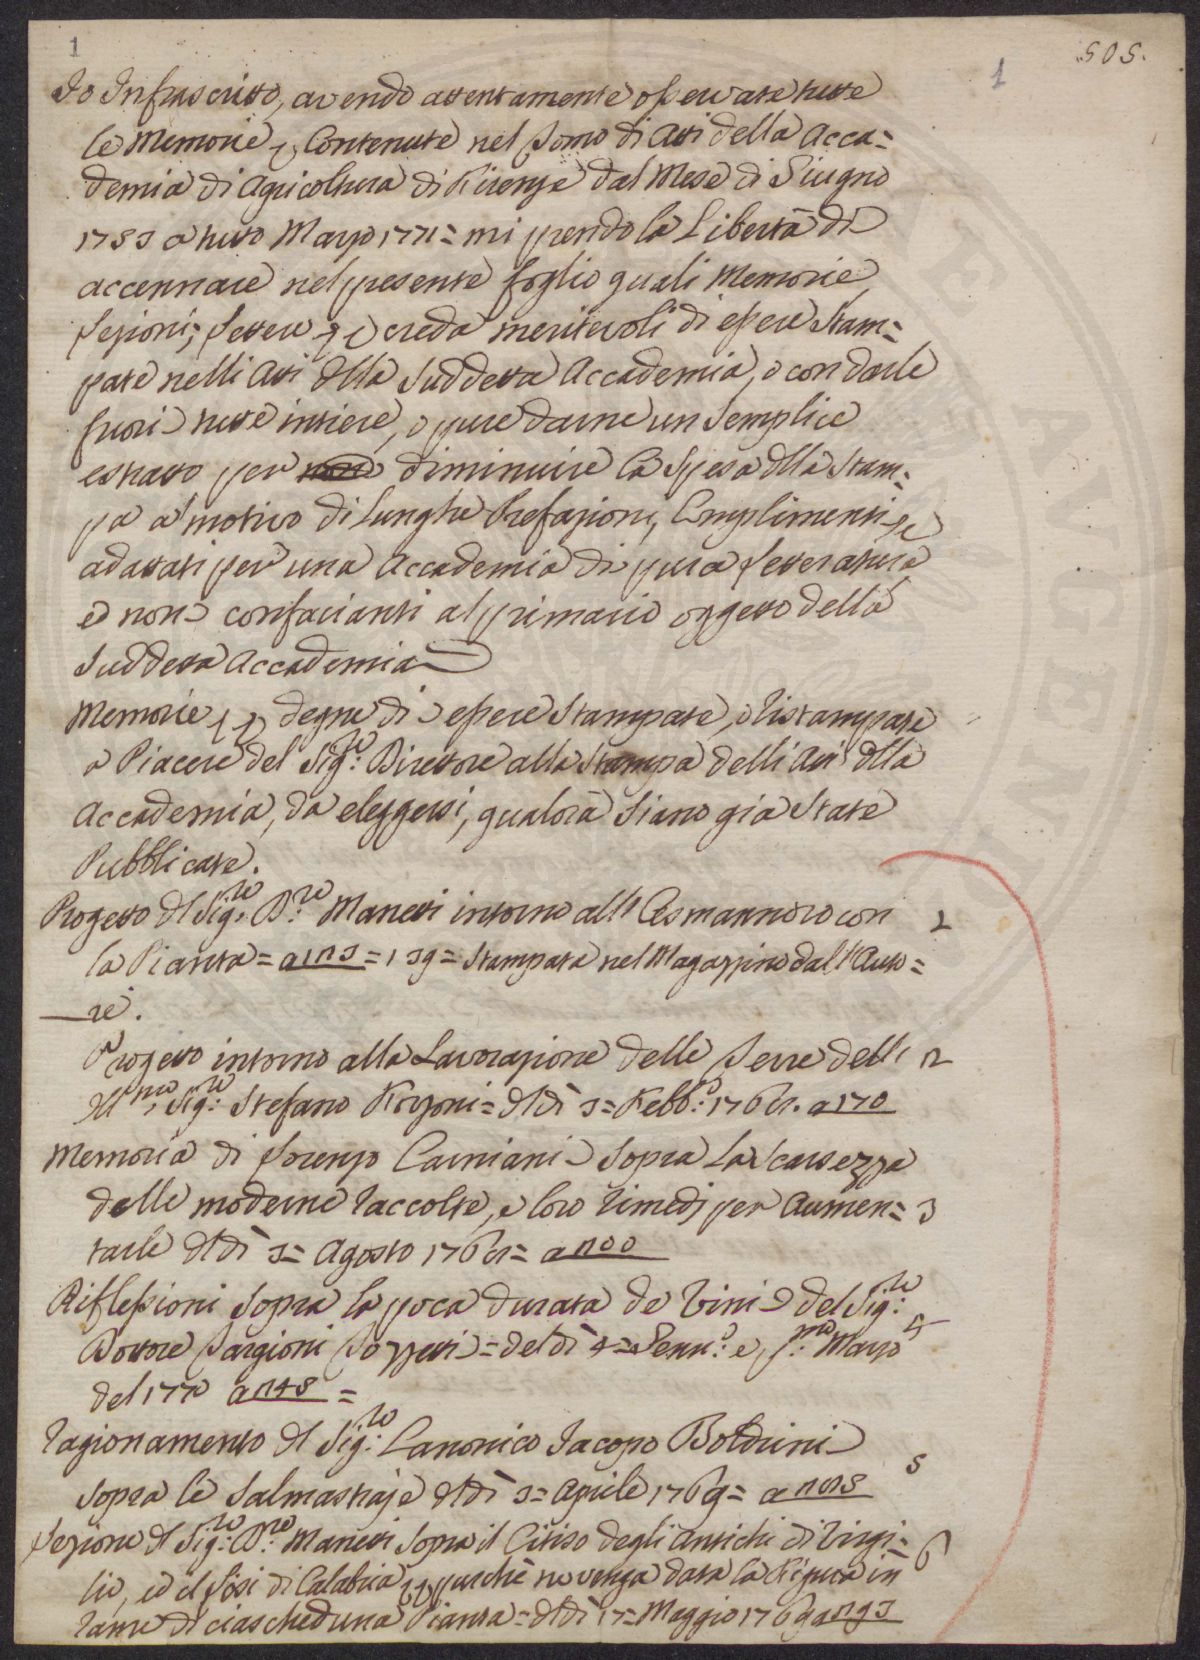 1
1
505.
Io Infrascritto, avendo attentamente osservate tutte
le Memorie, Contenute nel Tomo di Atti della Acca=
demia di Agricoltura di Firenze dal Mese di Giugno
1753 a tutto Marzo 1771= mi prendo la Libertà di
accennare nel presente foglio quali Memorie,
Lezioni, Lettere creda meritevoli di essere Stam=
pate nelli Atti dlla Suddetta Accademia, o con darle
fuori tutte intiere, o pure darne un Semplice
estratto per diminuire la Spesa dlla Stam=
pa a motivo di Lunghe Prefazioni, Complimenti
adattati per una Accademia di pura Letteratura
e non confacianti al primario oggetto della
Suddetta Accademia
Memorie degne di essere Stampate, o ristampate
a Piacere del Sig.re Direttore alla Stampa delli Atti dlla
Accademia, da eleggersi, qualora Siano già State
Pubblicate.
Progetto dl Sig.re D.re Manetti intorno all' Osmannoro con 1
la Pianta = = Stampata nel Magazzino dall'Auto=
re.
Progetto intorno alla Lavorazione delle Terre dell' 2
Ill.mo Sig.re Stefano = dl dì 3= Febb.o 176 . a 170
Memoria di Lorenzo Carniani Sopra La Scarsezza
delle moderne raccolte, e loro rimedj per Aumen= 3
tarle dl dì 3= Agosto 176 = a 200
Riflessioni Sopra la poca durata de Vini del Sig.re
Dottore Targioni Tozzetti = del dì 4= Genn.o e p.mo Marzo 4
del 1770 a 248 =
Ragionamento dl Sig.re Canonico Iacopo Boldrini
Sopra le Salmastraje dl dì 3= Aprile 1769= a 5
Lezione dl Sig.re D.re Manetti Sopra il Citiso degli Antichi di Virgi= 6
lio, ed il di Calabria purchè ne venga data la Figura in
rame di ciascheduna Pianta = dl dì 17= Maggio 1769 a 293